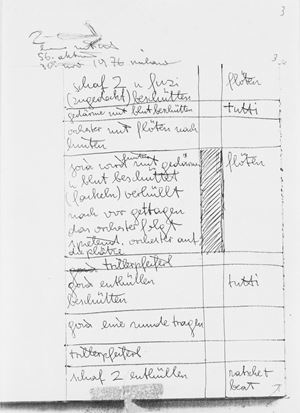 3
2
56. aktion
1976
3
schaf 2 u fuzi flöten
(zugedeckt) beschütten
gedärme mit blut beschütten tutti
orchester mit flöten nach
hinten
goia wird mit gedärme flöten
u blut beschüttet
(fackeln) verhüllt
nach vor getragen
das orchester folgt
spielend. orchester auf
die plätze
trillerpfeiferl
goia enthüllen tutti
beschütten
goia eine runde tragen
trillerpfeiferl
schaf 2 enthüllen ratsche +
beat